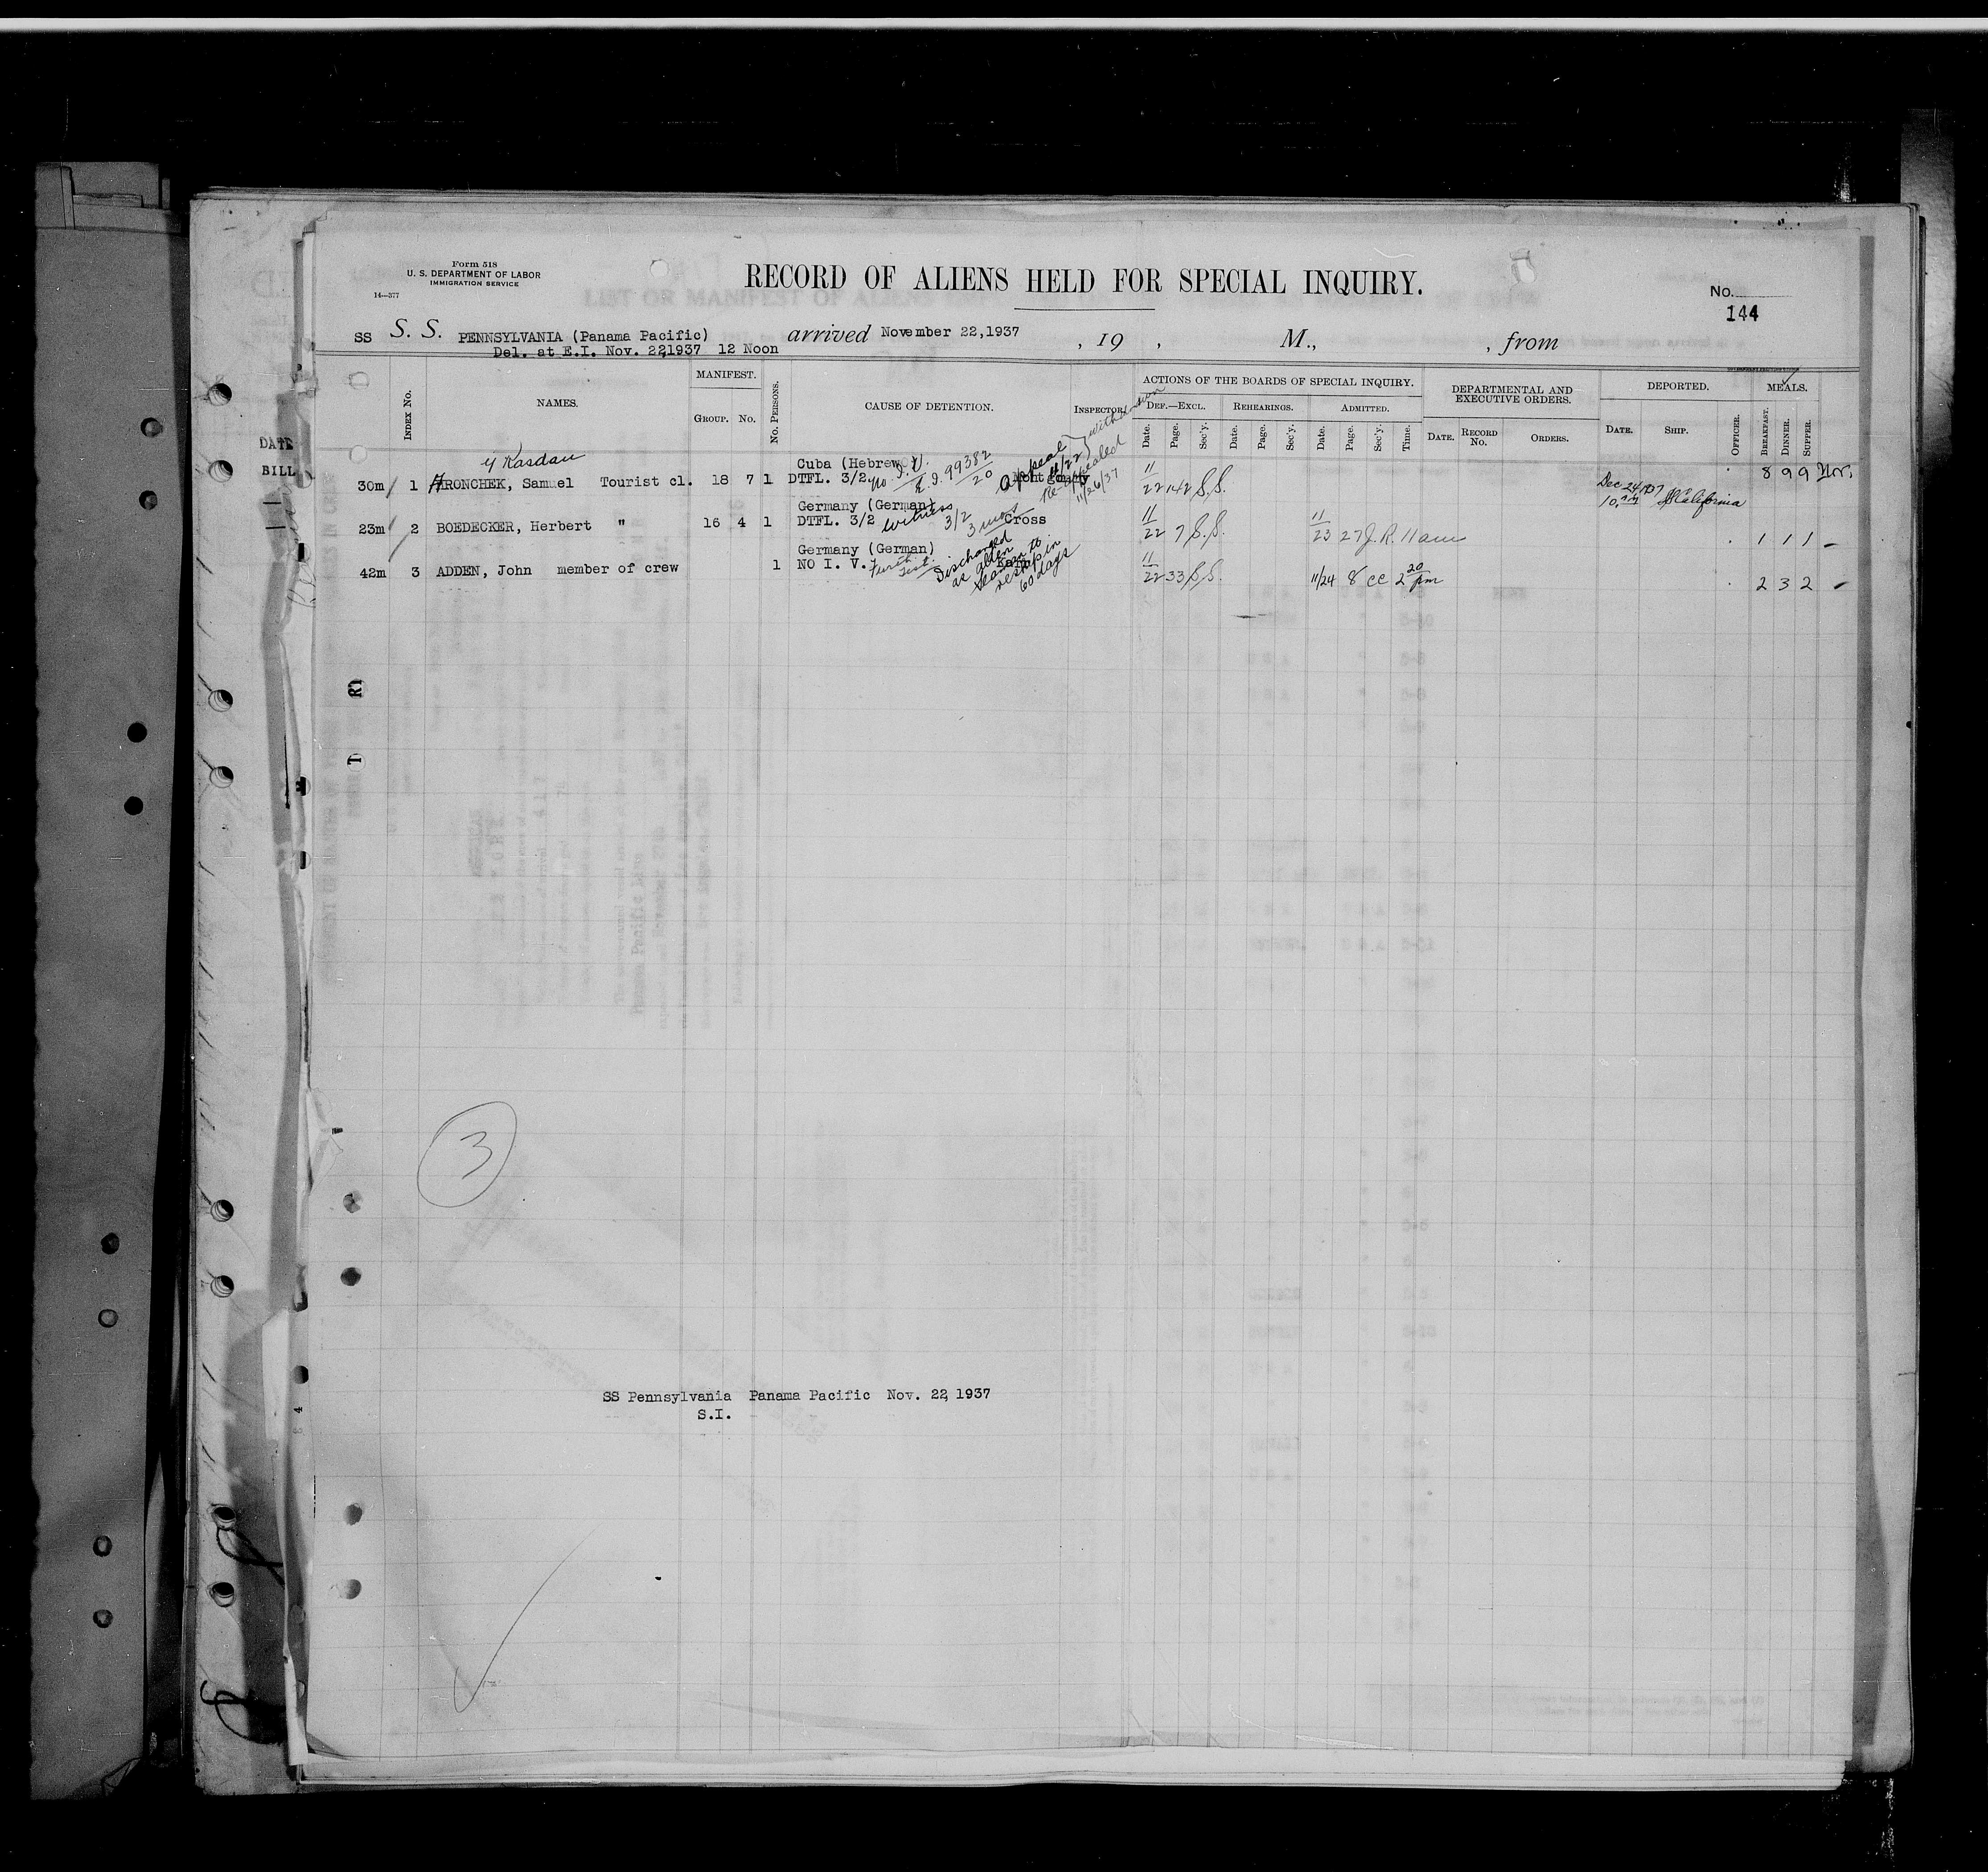 Form 518
U. S. DEPARTMENT OF LABOR
IMMIGRATION SERVICE
14—577
RECORD OF ALIENS HELD FOR SPECIAL INQUIRY.
No.
144
SS S. S. PENNSYLVANIA (Panama Pacific) arrived November 22,1937 , 19 , M., , from
Del. at E.I. Nov. 22,1937 12 Noon
DATE
BILL
Index No.
NAMES.
MANIFEST.
Group. No.
No. Persons.
CAUSE OF DETENTION.
Inspector.
ACTIONS OF THE BOARDS OF SPECIAL INQUIRY.
Def.—Excl. Rehearings. Admitted.
Date. Page. Sec'y. Date. Page. Sec'y. Date. Page. Sec'y. Time.
DEPARTMENTAL AND
EXECUTIVE ORDERS.
Date. Record No. Orders.
DEPORTED.
Date. Ship. Officer.
MEALS.
Breakfast. Dinner. Supper.
y Kasdan
Cuba (Hebrew)
30m 1 ARONCHEK, Samuel Tourist cl. 18 7 1 DTFL. 3/2 No I.V. E.I. 99382/20
Appeal 11/22 withdrawn
Re-appealed
11/26/37
11/22 142 S.S.
Dec 24, 1937 SS California
8 9 9
Germany (German)
23m 2 BOEDECKER, Herbert " 16 4 1 DTFL. 3/2 witness 3/2 3 mos Cross
11/22 7 S.S. 11/23 27 J.R. 11 am
1 1 1 –
Germany (German)
42m 3 ADDEN, John member of crew 1 NO I. V. Furth. Test.
Discharged
as alien
seaman to
reship in
60 days
11/22 33 S.S. 11/24 8 CC 2 20 pm
2 3 2
3
SS Pennsylvania Panama Pacific Nov. 22, 1937
S.I.